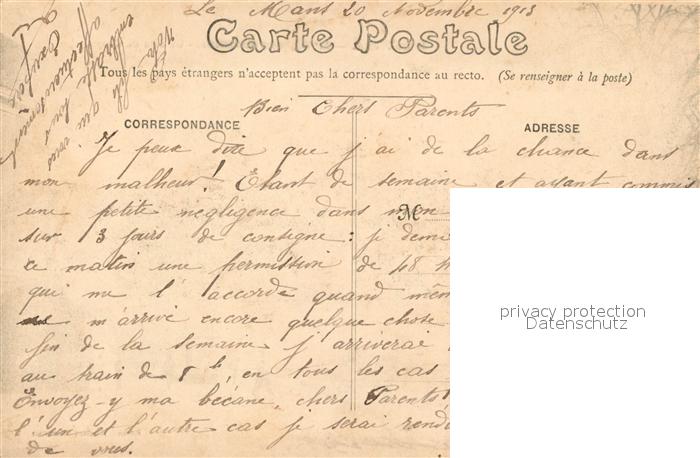 Le Mans 20 Novembre 1913
Carte Postale
Tous les pays étrangers n'acceptent pas la correspondance au recto. (Se renseigner à la poste)
Bien Chers Parents
CORRESPONDANCE
ADRESSE
Je peux dire que j'ai de la chance dans
mon malheur! Étant de semaine et ayant commis
une petite négligence dans mon
M
sur 3 jours de consigne: je
ce matin une permission de 48
qui me l'accorde quand
m'arrive encore quelque chose
fin de la semaine j'arriverai
au train de 8h, en tous les cas
Envoyez-y ma bécane, chers Parents!
l'un et l'autre cas je serai
de vous.
Votre fils qui vous
embrasse bien
affectueusement
privacy protection
Datenschutz